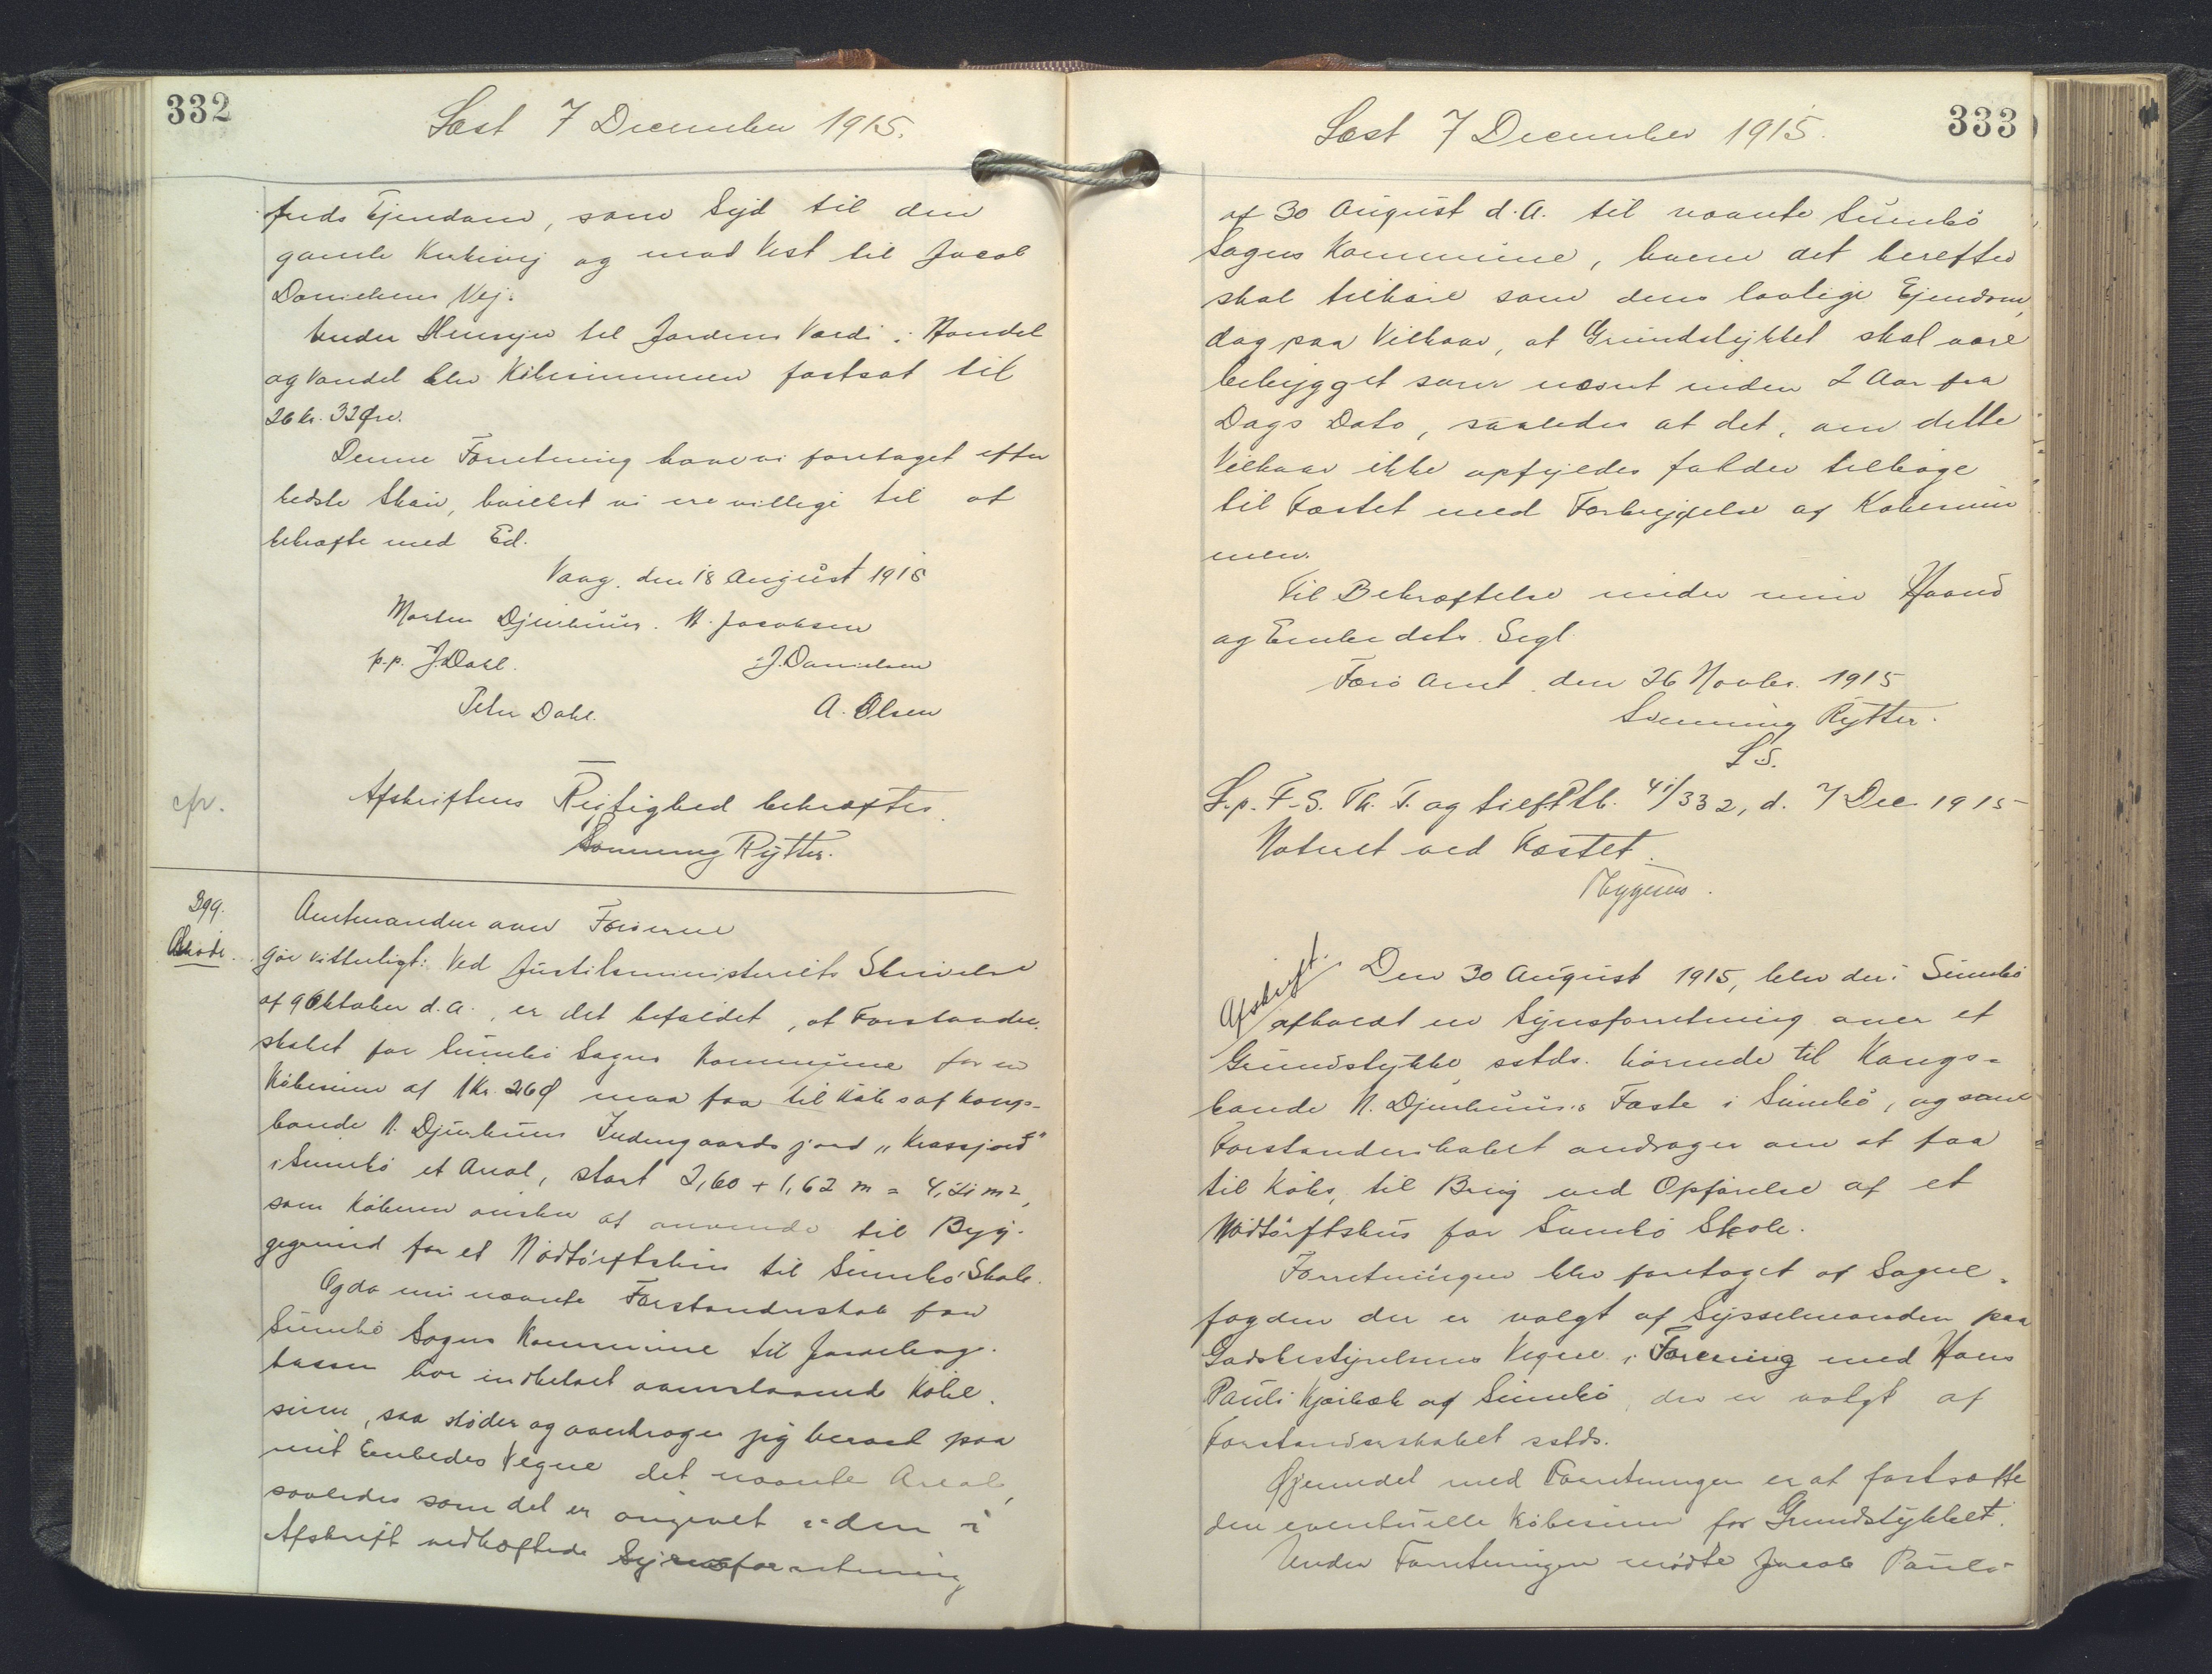 332
Læst 7 December 1915.
freds Ejendom, som Syd til den
gamle Kirkevej og mod Vest til Jacob
Danielsens Vej.
Under Hensyn til Jordens Værdi i Handel
og Vandel blev Købesummen fastsat til
26 kr. 32 Øre.
Denne Forretning have vi foretaget efter
bedste Skøn, hvilket vi ere villige til at
bekræfte med Ed.
Vaag, den 18 August 1915
Morten Djurhuus. N. Jacobsen
p.p. J. Dahl. J. Danielsen
Peter Dahl. A. Olsen
cfr.
Afskriftens Rigtighed bekræftes.
Svenning Rytter.
399.
Skøde.
Amtmanden over Færøerne
gør vitterligt: Ved Justitsministeriets Skrivelse
af 9 Oktober d.A., er det bifaldet, at Forstander-
skabet for Sumbø Sogns Kommune for en
Købesum af 1 Kr. 26 Ø maa faa til Købs af Kongs-
bonde N. Djurhuus Indengaardsjord "Krassjord"
i Sumbø et Areal, stort 2,60 + 1,62 m = 4,21 m²,
som Køberen ønsker at anvende til Byg-
gegrund for et Nødtørftshus til Sumbø Skole.
Og da nu nævnte Forstanderskab for
Sumbø Sogns Kommune til Jordebog-
kassen har indbetalt ovenstaaende Købe-
sum, saa skøder og overdrager jeg herved paa
mit Embedes Vegne det nævnte Areal,
saaledes som det er angivet i den i
Afskrift vedhæftede Synsforretning
333
Læst 7 December 1915.
af 30 August d.A. til nævnte Sumbø
Sogns Kommune, hvem det herefter
skal tilhøre som dens lovlige Ejendom,
dog paa Vilkaar, at Grundstykket skal være
bebygget som nævnt inden 2 Aar fra
Dags Dato, saaledes at det, om dette
Vilkaar ikke opfyldes falder tilbage
til Fæstet med Forbrydelse af Købesum
men.
Til Bekræftelse under min Haand
og Embedets Segl.
Færø Amt, den 26 Novbr. 1915
Svenning Rytter.
L.S.
L.p. F.-S. Th. T. og tilf. Ptb. 41/332, d. 7 Dec 1915
Noteret ved Fæstet.
Thygesen.
Afskrift.
Den 30 August 1915, blev der i Sumbø
afholdt en Synsforretning over et
Grundstykke, sstds. hørende til Kongs-
bonde N. Djurhuus's Fæste i Sumbø, og som
Forstanderskabet andrager om at faa
til Købs, til Brug ved Opførelse af et
Nødtørftshus for Sumbø Skole.
Forretningen blev foretaget af Sogne-
fogden der er valgt af Sysselmanden paa
Godsbestyrelsens Vegne i Forening med Hans
Pauli Kjærbæk af Sumbø, der er valgt af
Forstanderskabet sstds.
Øjemedet med Forretningen er at fastsætte
den eventuelle Købesum for Grundstykket.
Under Forretningen mødte Jacob Pauls-